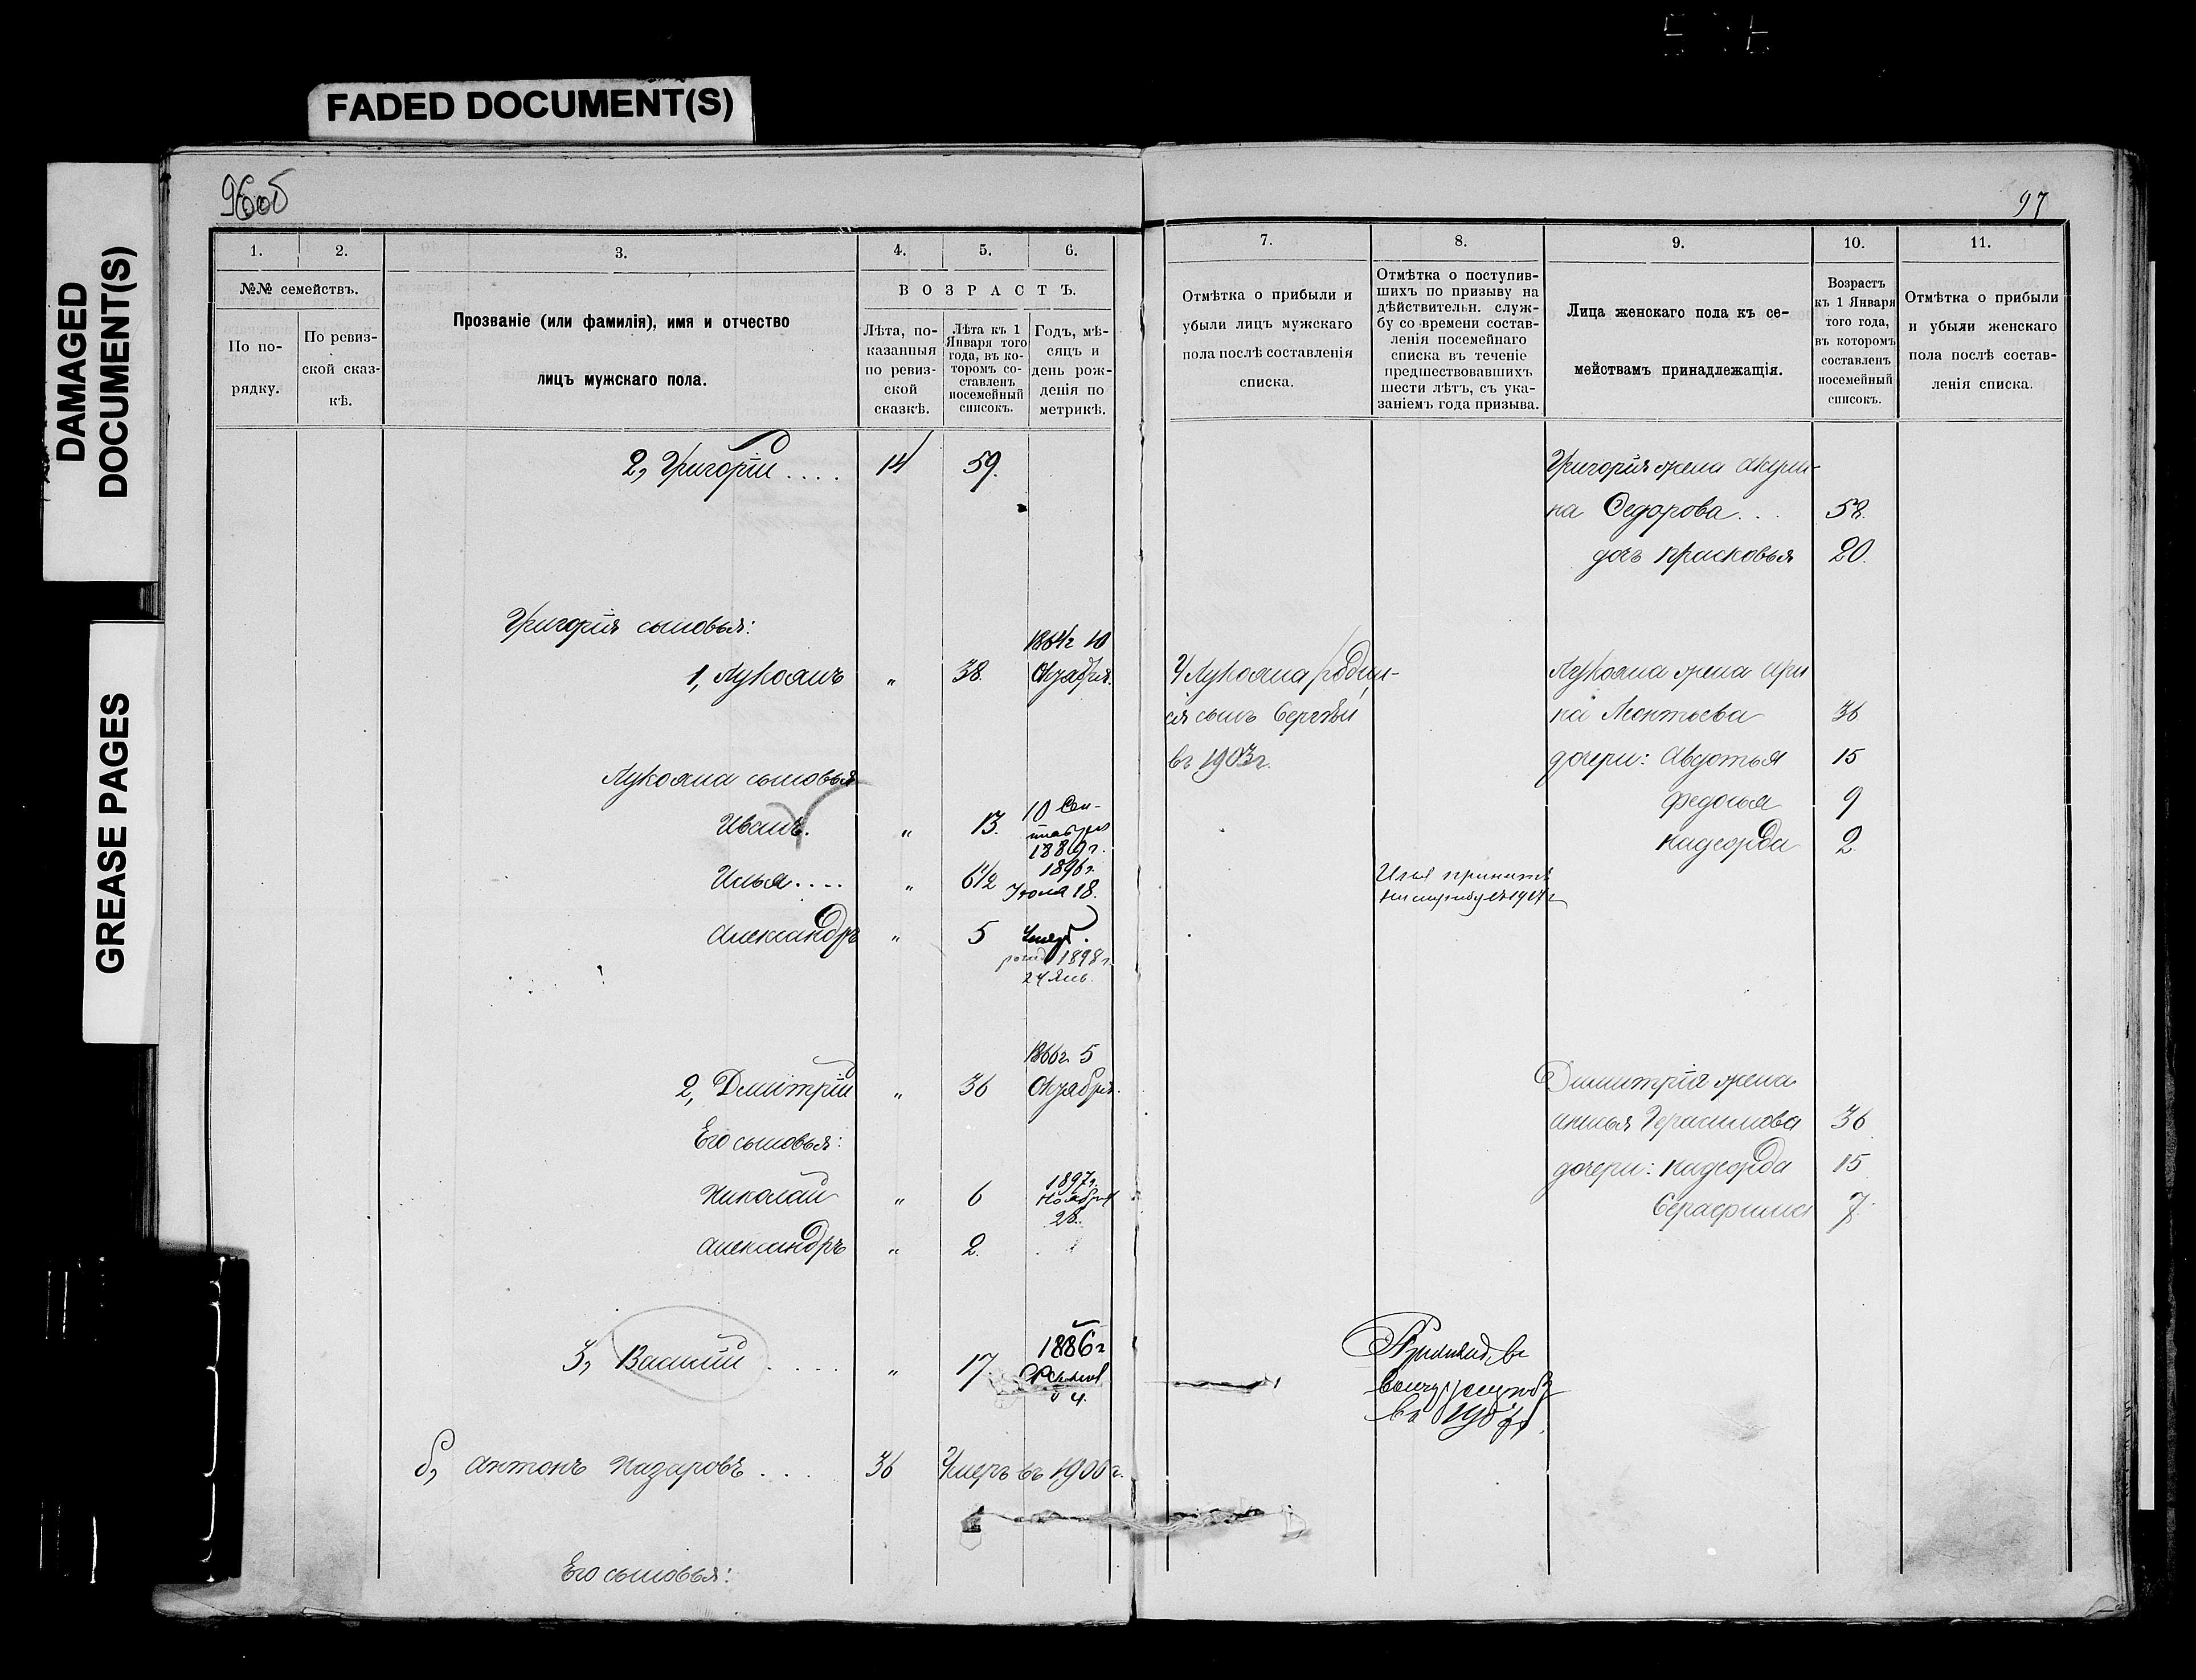 FADED DOCUMENT(S)
DAMAGED
DOCUMENT(S)
GREASE PAGES
96об
1.
2.
3.
4.
5.
6.
№№ семействъ.
По по-
рядку.
По ревиз-
ской сказ-
кѣ.
Прозваніе (или фамилія), имя и отчество
лицъ мужскаго пола.
ВОЗРАСТЪ.
Лѣта, по-
казанныя
по ревиз-
ской
сказкѣ.
Лѣта къ 1
Января того
года, въ ко-
торомъ со-
ставленъ
посемейный
списокъ.
Годъ, мѣ-
сяцъ и
день рож-
денія по
метрикѣ.
2, Григорій .... 14 59.
Григорія сыновья:
1864г 10
1, Лукоянъ " 38. Октября.
Лукояна сыновья
Иванъ. " 13. 10 Сен-
тября
1889г.
Илья.... " 6½ 1896г.
Июля 18.
Александръ " 5 Умеръ.
1898г.
24 Янв.
1866г. 5
2, Дмитрій " 36 Октября.
Его сыновья:
Николай " 6 1897г.
Ноября
28.
Александръ " 2.
3, Василій .... " 17. 1886г
4.
б, Антонъ Назаровъ ... 36 Умеръ въ 1900г.
Его сыновья:
97
7.
8.
9.
10.
11.
Отмѣтка о прибыли и
убыли лицъ мужскаго
пола послѣ составленія
списка.
Отмѣтка о поступив-
шихъ по призыву на
дѣйствительн. служ-
бу со времени состав-
ленія посемейнаго
списка въ теченіе
предшествовавшихъ
шести лѣтъ, съ ука-
заніемъ года призыва.
Лица женскаго пола къ се-
мействамъ принадлежащія.
Возрастъ
къ 1 Января
того года,
въ которомъ
составленъ
посемейный
списокъ.
Отмѣтка о прибыли
и убыли женскаго
пола послѣ состав-
ленія списка.
Григорія жена Акули-
на Федорова... 58.
дочь Прасковья 20.
У Лукояна родил-
ся сынъ Сергѣй
въ 1903г.
Лукояна жена Ири
на Леонтьева 36
дочери: Авдотья 15
Федосья 9
Надежда 2
Илья принятъ
Димитрія жена
Анисья Герасимова 36
дочери: Надежда 15
Серафима 7.